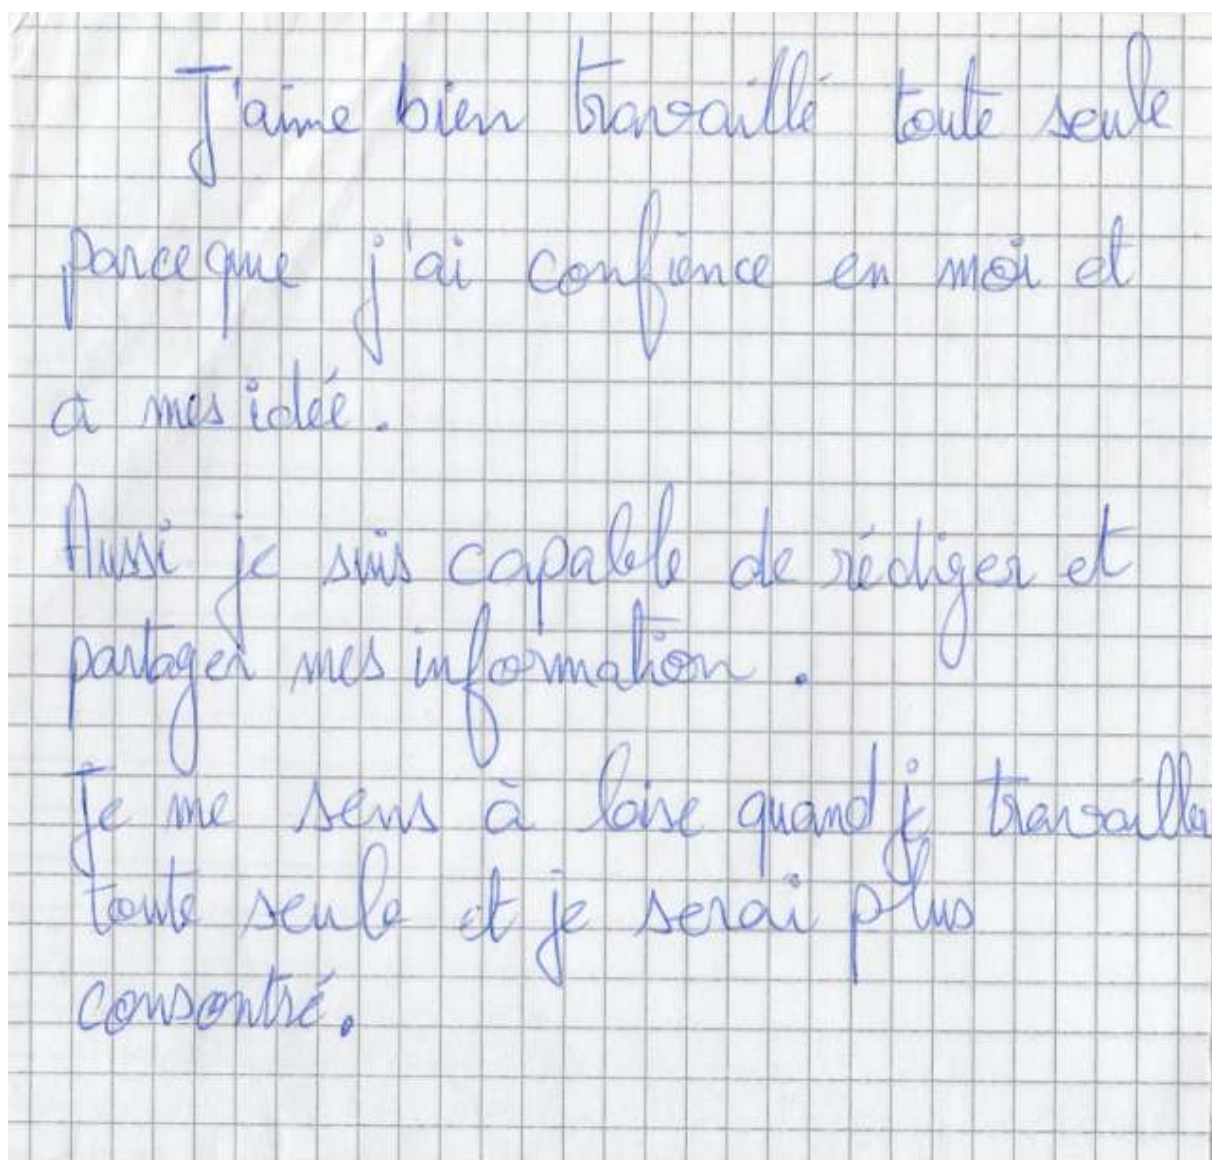 J'aime bien travaillé toute seule
parceque j'ai confience en moi et
a mes idée.
Aussi je suis capable de rédiger et
partager mes information.
Je me sens à loise quand je travaille
toute seule et je serai plus
consontré.